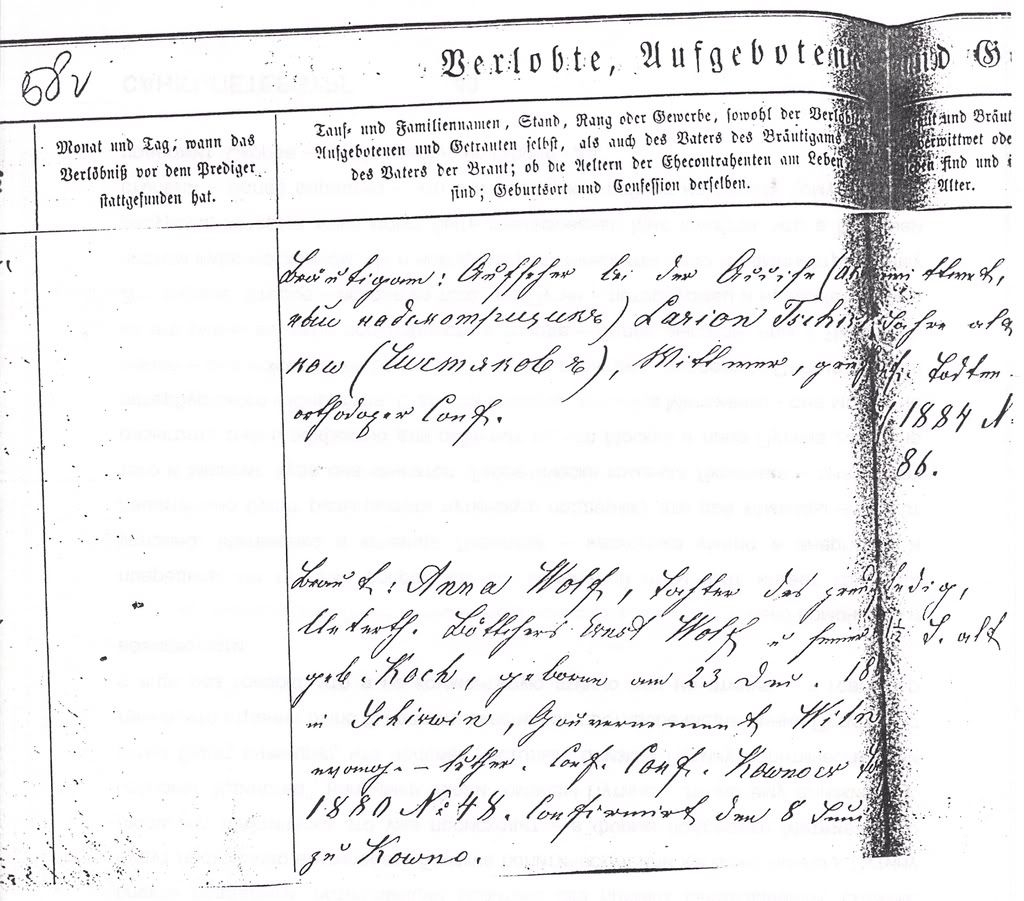 58v
Verlobte, Aufgebotene und G
Monat und Tag, wann das
Verlöbniß vor dem Prediger
stattgefunden hat.
Tauf- und Familiennamen, Stand, Rang oder Gewerbe, sowohl der Verlobten
Aufgebotenen und Getrauten selbst, als auch des Vaters des Bräutigams
des Vaters der Braut; ob die Aeltern der Ehecontrahenten am Leben
sind; Geburtsort und Confession derselben.
und Bräut
verwittwet ode
sind und i
Alter.
Bräutigam: Aufseher bei der Accise
надсмотрщикъ) Larion Tschist
kow (Чистяковъ), Wittwer, gr
orthodoxer Conf.
wittwet,
Jahre alt
Todten
1884 N
86.
Braut: Anna Wolf, Tochter des preuß
Unterth. Böttchers Ernst Wolf u
geb. Koch, geboren am 23 Dec. 18
in Schirwin, Gouvernement Wiln
evang.-luther. Conf. Conf. Kownoer
1880 No 48. Confirmirt den 8 Juni
zu Kowno.
ledig,
½ J. alt